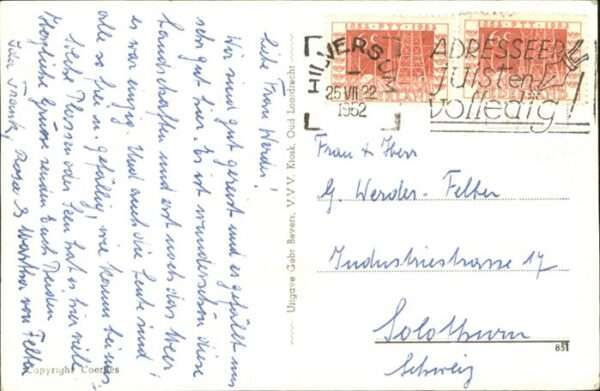 Liebe Frau Werder!
Wir sind gut gereist und es gefällt uns
sehr gut hier. Es ist wunderschön diese
Landschaften und erst noch das Meer
es war einzig. Und auch die Leute sind
alle so frei u. gefällig! wie kaum bei uns!
Flüssen oder Seen hat es hier viele
Herzliche Grüsse senden Euch Beiden
Ida Frank, Rosa & Martha von Felten
Uitgave Gebr Bevers, V.V.V. Kiosk, Oud Loosdrecht
Copyright Coerdes
1852 1952
HILVERSUM
25 VII 22
1952
ADRESSEER
juist en
volledig!
Frau & Herr
G. Werder-Felber
Industriestrasse 17
Solothurn
Schweiz
851